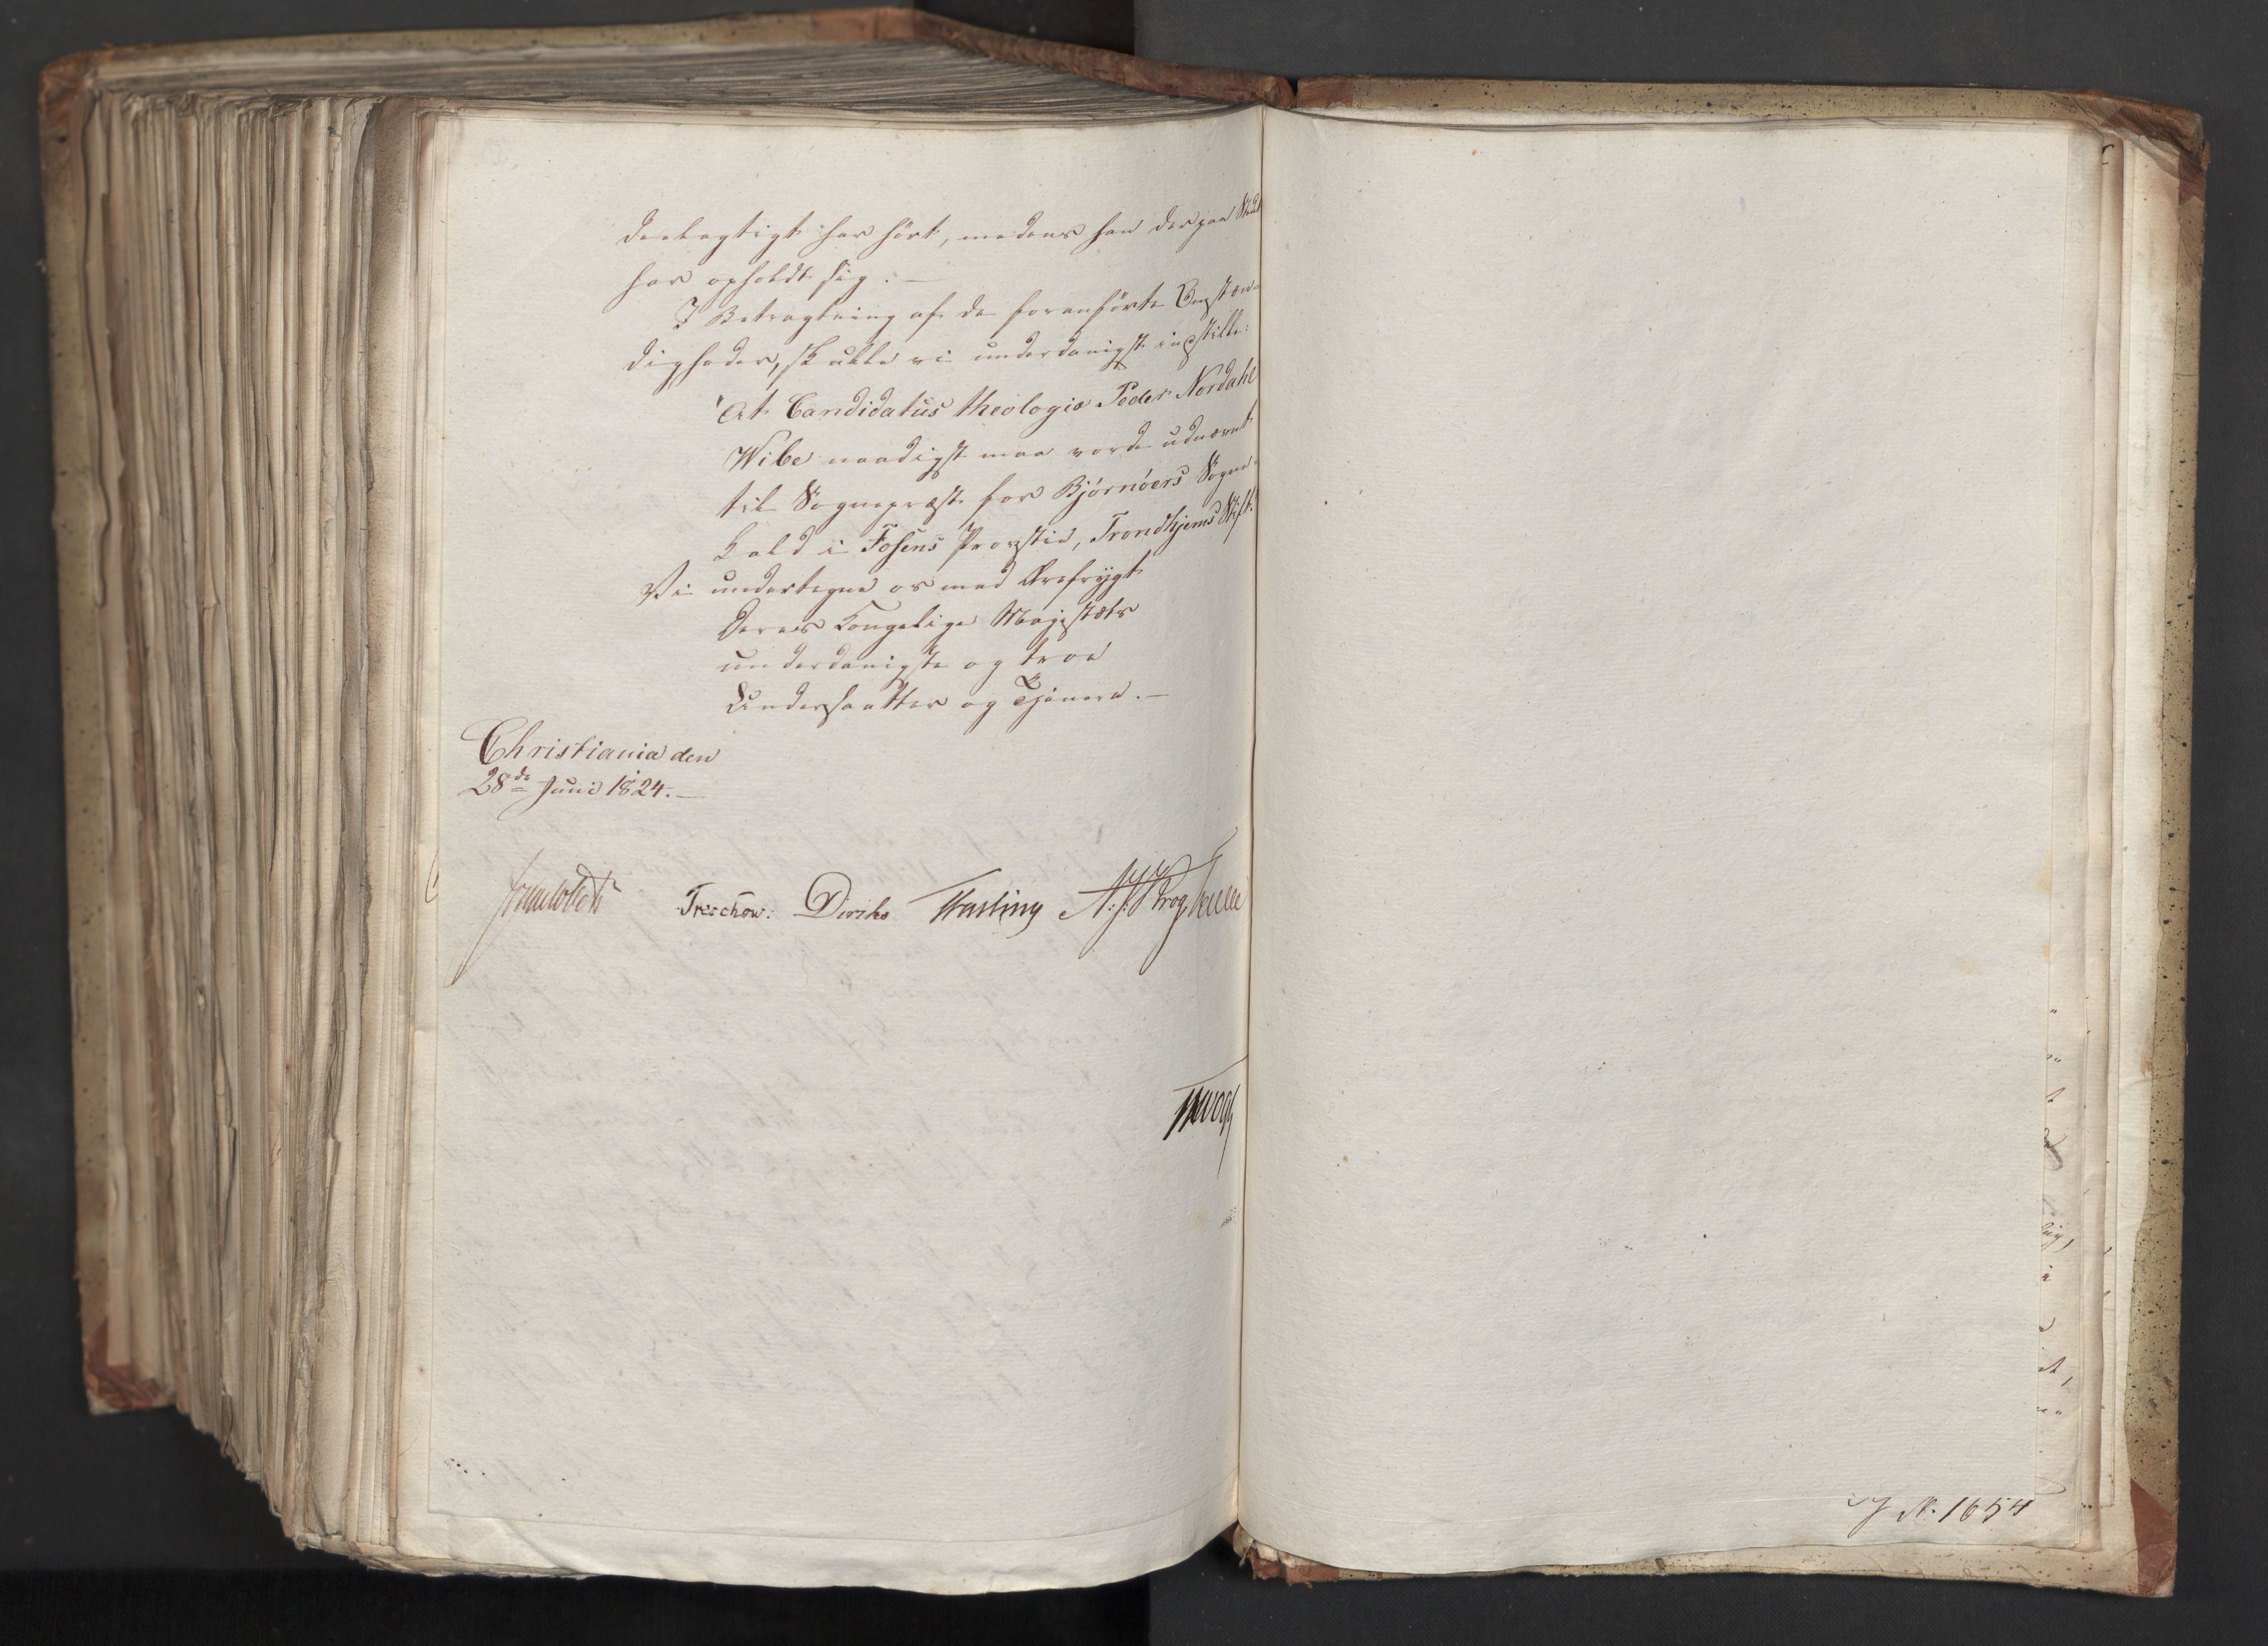 deelagtigt har hört, medens han der paa Stedet
har opholdt sig. —
I Betragtning af de foranförte Omstæn-
digheder, skulle vi underdanigst indstille:
"At Candidatus theologiæ Peder Nordahl
Wibe naadigst maa vorde udnævnt
til Sognepræst for Bjørnöers Sogne-
kald i Fosens Provstie, Trondhjems Stift.
Vi undertegne os med Ærefrygt
Deres Kongelige Majestæts
underdanigste og troe
Undersaatter og Tjenere. —
Christiania den
28de Juni 1824. —
Treschow: Diriks Fasting A: J: Krog
J № 1654